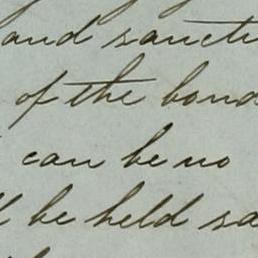 and sancti
of the bond
can be no
be held sa